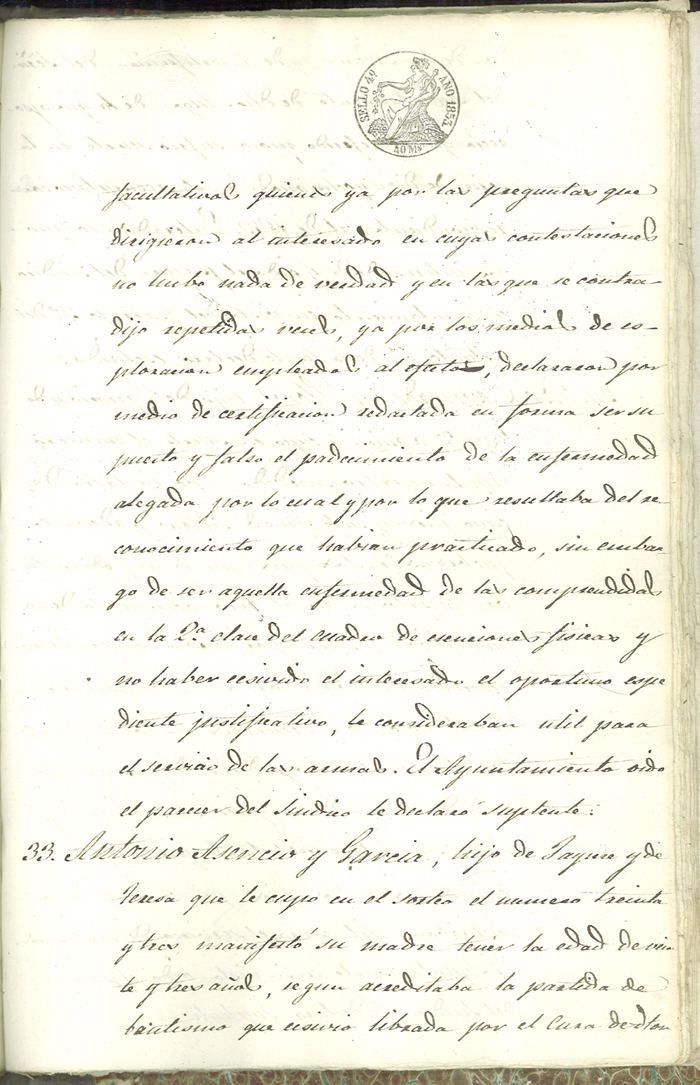 SELLO 4º AÑO 1853.
40 Ms
facultativos quienes ya por las preguntas que
dirigieron al interesado en cuyas contestaciones
no hubo nada de verdad y en las que se contra-
dijo repetidas veces, ya por los medios de es-
ploracion empleados al efecto, declararon por
medio de certificacion redactada en forma ser su
puesto y falso el padecimiento de la enfermedad
alegada por lo cual y por lo que resultaba del re
conocimiento que habian practicado, sin embar-
go de ser aquella enfermedad de las comprendidas
en la 2.ª clase del cuadro de esenciones fisicas y
no haber ecsivido el interesado el oportuno espe
diente justificativo, le consideraban util para
el servicio de las armas. El Ayuntamiento oido
el parecer del Sindico le declaró suplente:
33. Antonio Asencio y Garcia, hijo de Jayme y de
Teresa que le cupo en el sorteo el numero treinta
y tres manifestó su madre tener la edad de vein
te y tres años, segun acreditaba la partida de
bautismo que ecsivio librada por el Cura de